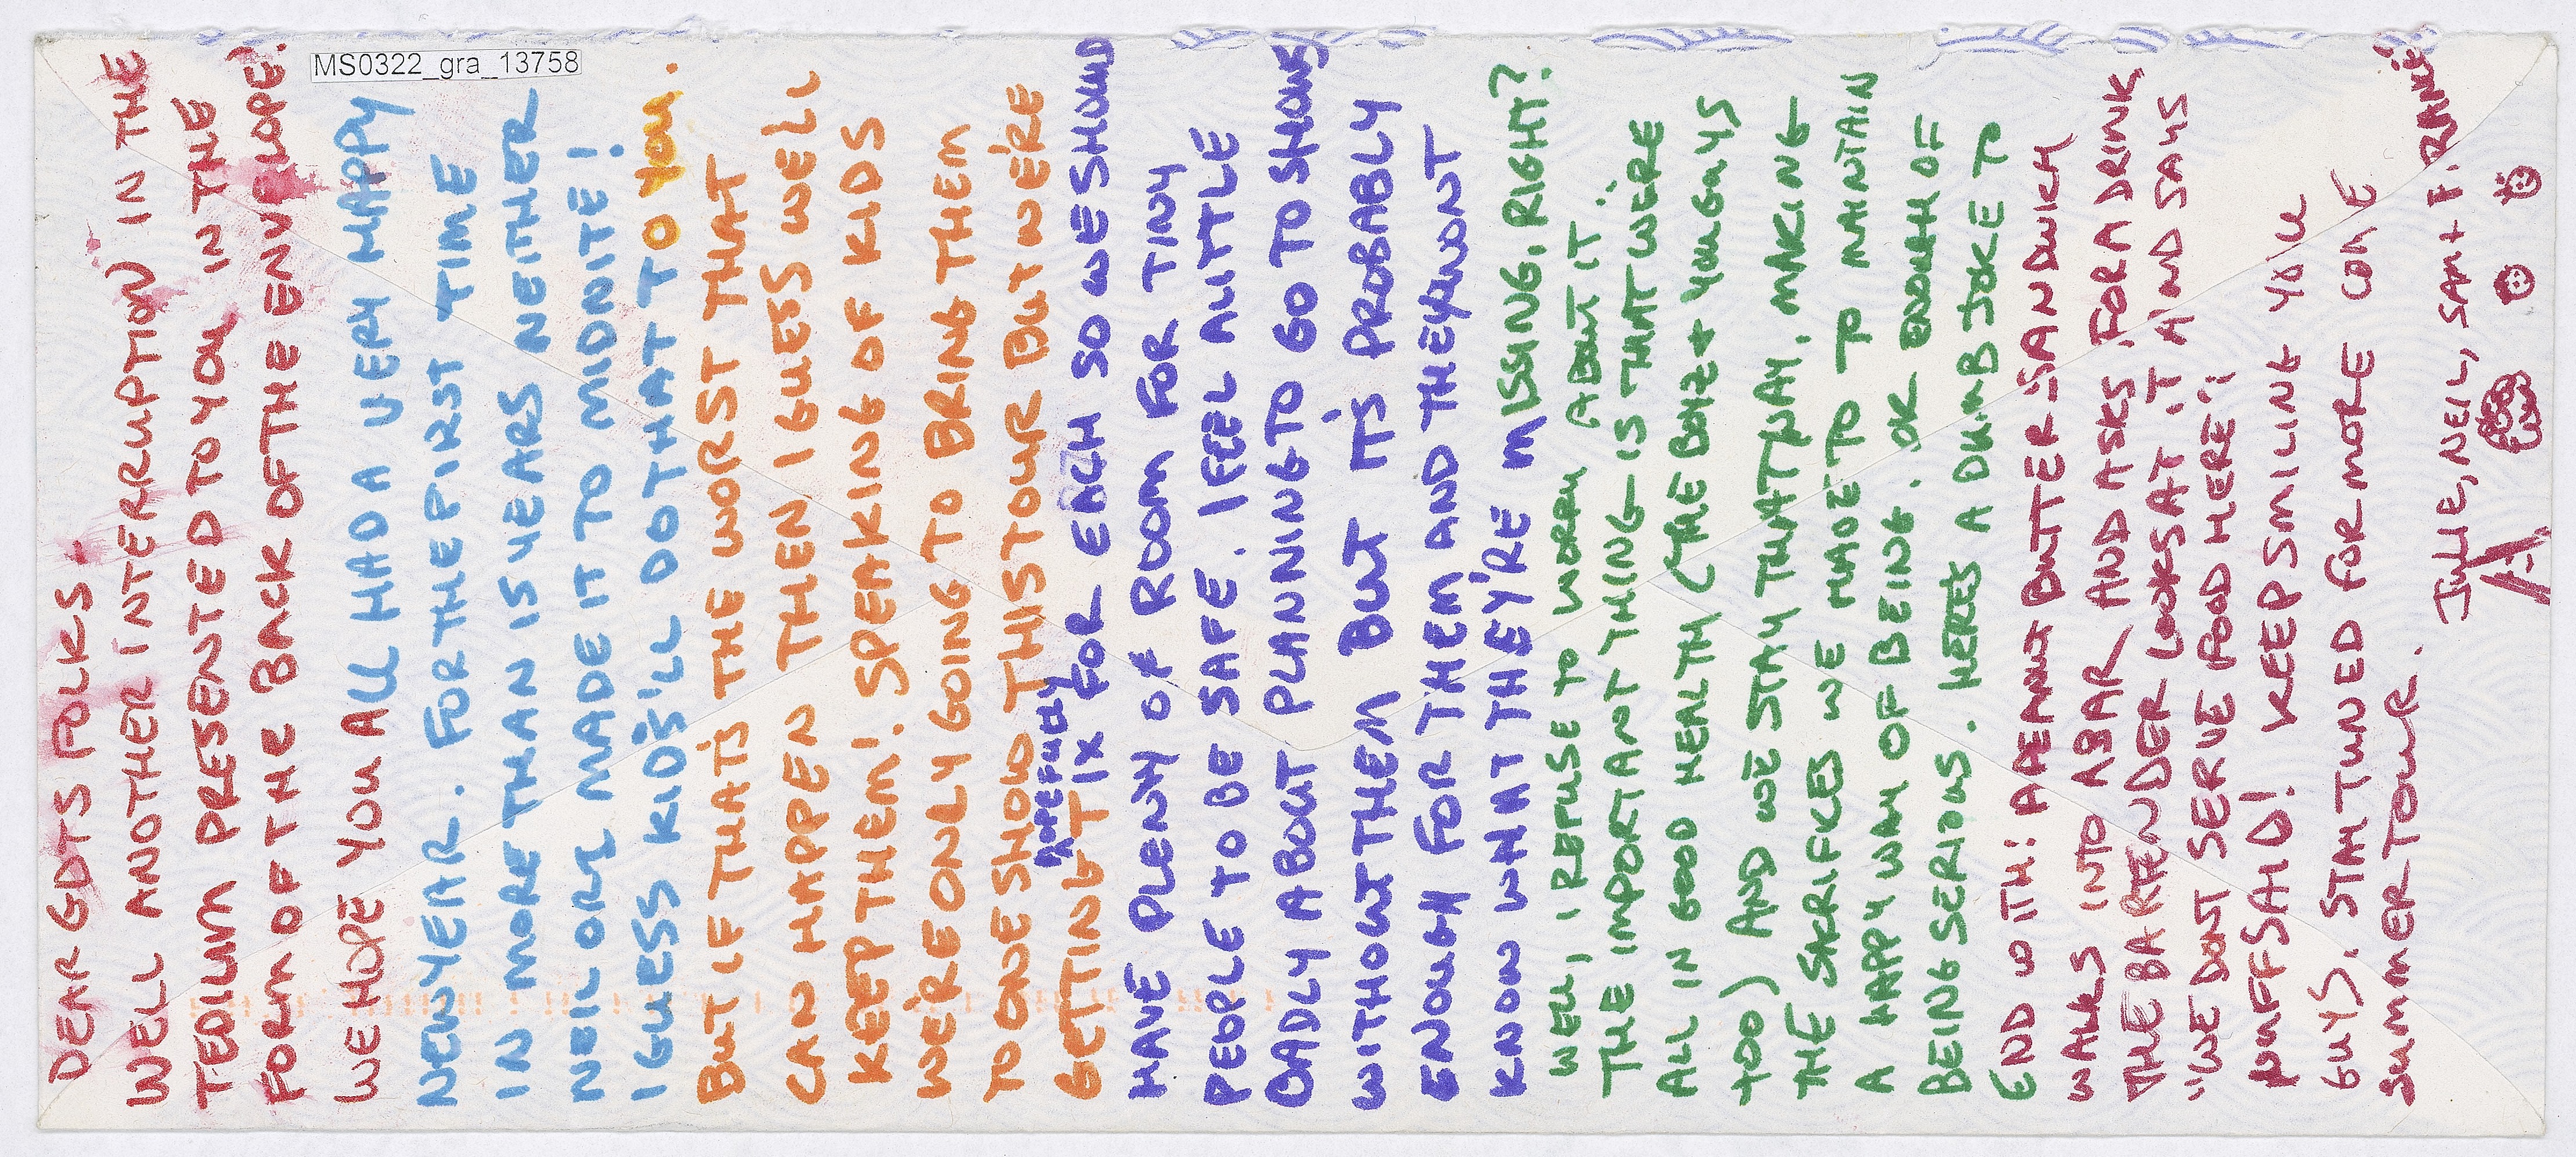 MS0322_gra_13758
DEAR GDTS FOLKS -
WELL ANOTHER INTERRUPTION IN THE
TEDIUM PRESENTED TO YOU IN THE
FORM OF THE BACK OF THE ENVELOPE!
WE HOPE YOU ALL HAD A VERY HAPPY
NEW YEAR. FOR THE FIRST TIME
IN MORE THAN 15 YEARS NEITHER
NEIL OR I MADE IT TO MIDNITE!
I GUESS KIDS'LL DO THAT TO YOU.
BUT IF THAT'S THE WORST THAT
CAN HAPPEN THEN I GUESS WE'LL
KEEP THEM! SPEAKING OF KIDS
WE'RE ONLY GOING TO BRING THEM
TO ONE SHOW THIS TOUR BUT WE'RE
HOPEFULLY
GETTING TIX FOR EACH SO WE SHOULD
HAVE PLENTY OF ROOM FOR TINY
PEOPLE TO BE SAFE. I FEEL A LITTLE
BADLY ABOUT PLANNING TO GO TO SHOWS
WITHOUT THEM BUT IT'S PROBABLY
ENOUGH FOR THEM AND THEY WON'T
KNOW WHAT THEY'RE MISSING, RIGHT?
WELL, I REFUSE TO WORRY ABOUT IT.
THE IMPORTANT THING IS THAT WE'RE
ALL IN GOOD HEALTH (THE BOYZ + YOU GUYS
TOO) AND WE STAY THAT WAY. MAKING
THE SACRIFICES WE HAVE TO TO MAINTAIN
A HAPPY WAY OF BEING. OK ENOUGH OF
BEING SERIOUS. HERE'S A DUMB JOKE TO
END WITH: A PEANUT BUTTER SANDWICH
WALKS INTO A BAR AND ASKS FOR A DRINK
THE BARTENDER LOOKS AT IT AND SAYS
"WE DON'T SERVE FOOD HERE!"
NUFF SAID! KEEP SMILING YOU
GUYS. STAY TUNED FOR MORE COME
SUMMER TOUR.
JULIE, NEIL, SAM + F.